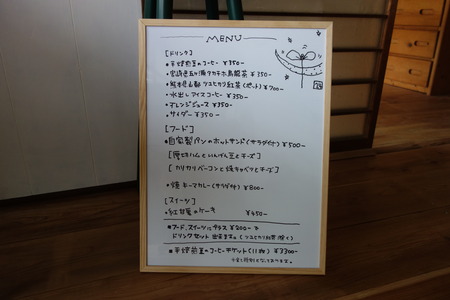 MENU
[ドリンク]
・手焙煎豆のコーヒー ¥350-
・宮崎県五ヶ瀬タカチホ烏龍茶 ¥350-
・熊本県山都 ツユヒカリ紅茶(ポット) ¥700-
・水出しアイスコーヒー ¥350-
・オレンジジュース ¥350-
・サイダー ¥350-
[フード]
・自家製パンのホットサンド(サラダ付) ¥500-
[厚切ハムといんげん豆とチーズ]
[カリカリベーコンと焼キャベツとチーズ]
・焼キーマカレー(サラダ付) ¥800-
[スイーツ]
・紅 のケーキ ¥450-
■フード、スイーツにプラス ¥200-で
ドリンクセット 出来ます。(ツユヒカリ紅茶 除く)
■手焙煎豆のコーヒーチケット(11枚) ¥3300-